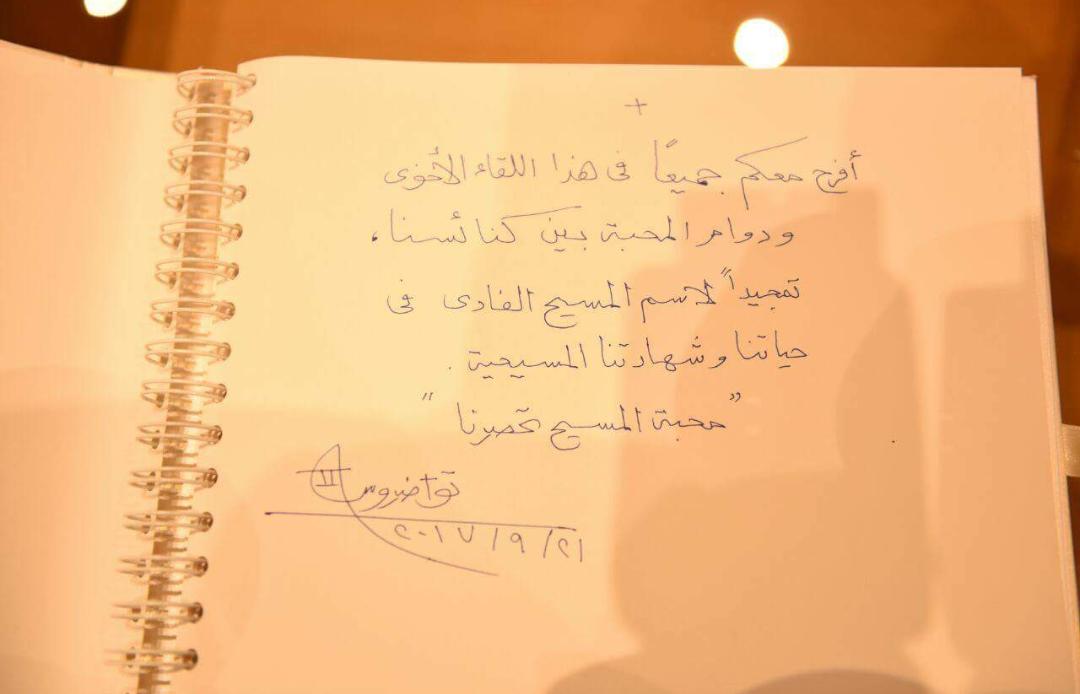 +
أفرح معكم جميعًا فى هذا اللقاء الأخوى
ودوام المحبة بين كنائسنا،
تمجيداً لاسم المسيح الفادى فى
حياتنا وشهادتنا المسيحية.
"محبة المسيح تحصرنا"
تواضروس II
٢٠١٧/٩/٢١